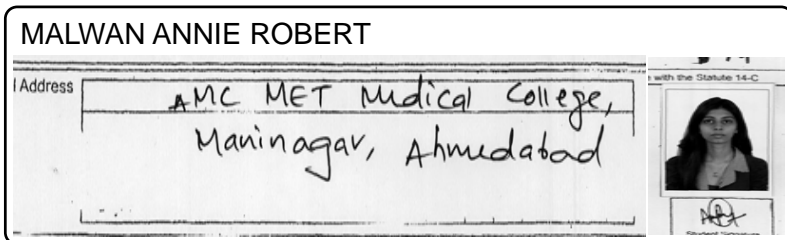 MALWAN ANNIE ROBERT
l Address
AMC MET Medical College,
Maninagar, Ahmedabad
with the Statute 14-C
Student Signature